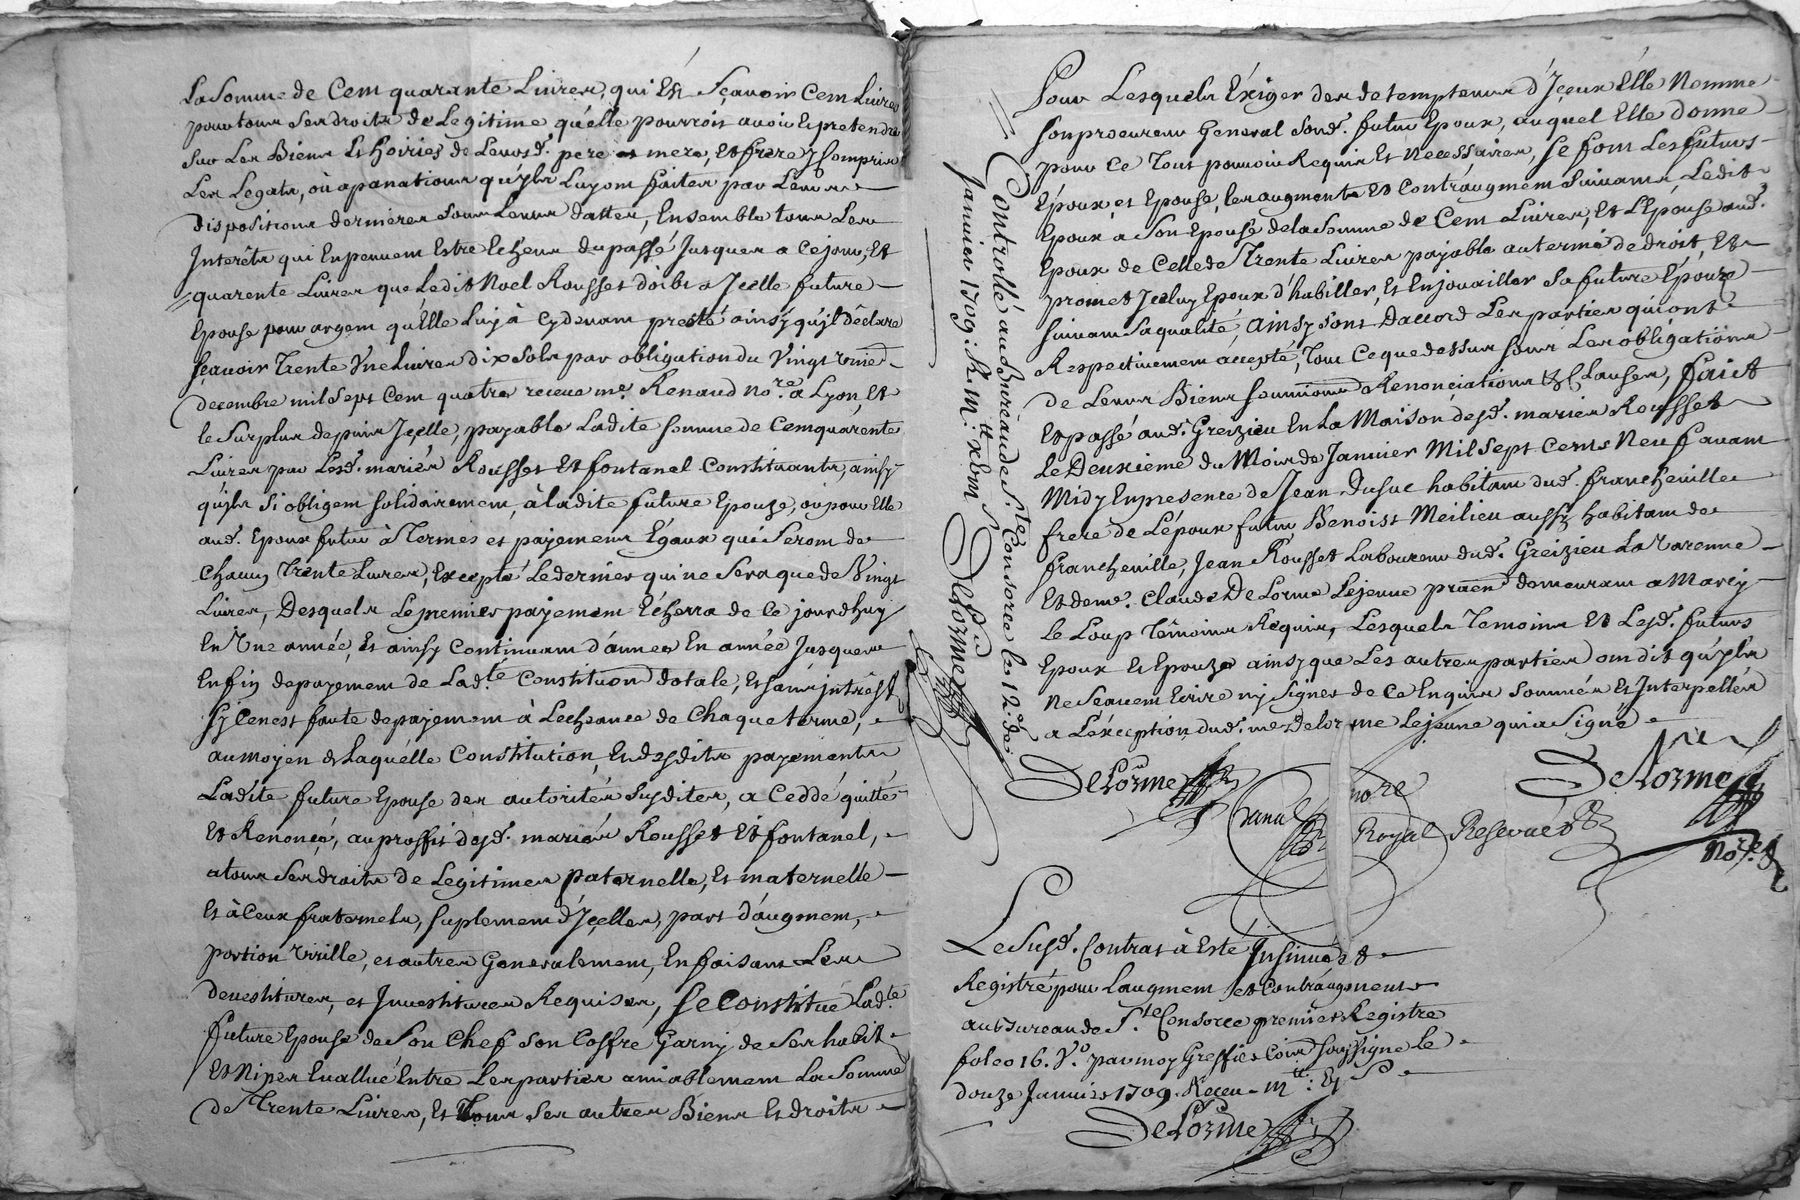 La Somme de Cent quarante Livres, qui Est Sçavoir Cent Livres
pour tous Ses droits de Legitime qu'elle pourroit avoir Et pretendre
Sur Les Biens Et hoiries de Leursd. pere et mere, Et frere y Comprins
Les Legats, où apanations qu'yls Luy ont faites par Leurs
dispositions dernieres Sous Leurs dattes, Ensemble tous Les
Interêts qui En peuvent Estre Echeus du passé Jusques a Ce jour, Et
quarente Livres que Ledit Noel Rousset doibt a Jcelle future
Epouse pour argent qu'Elle Luy à Cydevant presté ainsy qu'jl déclare
Sçavoir Trente Une Livres dix Sols par obligation du Vingt
decembre mil Sept Cent quatre receue me. Renaud nore. a Lyon, Et
le Surplus depuis Jcelle, payable Ladite Somme de Cent quarente
Livres par Lesd. mariés Rousset Et fontanel Constituants, ainsy
qu'yls Si obligent Solidairement, à ladite future Epouze, où pour Elle
aud. Epoux futur à Termes et payemens Égaux qui Seront de
Chacun Trente Livres, Excepté Le dernier qui ne Sera que de Vingt
Livres, Desquels Le premier payement Écherra de Ce jourdhuy
En Une année, Et ainsy Continuant d'année En année Jusques
Enfin de payement de Ladte. Constituon dotale, Et Sans jntrêst
Sy Ce nest faute de payement à Lecheance de Chaque terme,
au moyen de Laquélle Constitution, Et desdits payements
Ladite future Epouse des autorités Susdites, a Ceddé quitté
Et Renoncé, au proffit desd. mariés Rousset Et fontanel,
a tous Ses droits de Legitimes paternelle, Et maternelle
Et à Ceux fraternels, Suplement d'Jcelles, part d'augment,
portion Virille, et autres Generalement, En faisant Les
devestitures, et Jnvestitures Requises, Se Constitué Ladte.
future Epouse de Son Chef Son Coffre Garny de Ses habits
Et Nipes Evallué Entre Les parties amiablement La Somme
de Trente Livres, Et Tous Ses autres Biens Et droits
Pour Lesquels Éxiger des detempteurs d'Jceux Elle Nomme
Son procureur General Sond. futur Epoux, auquel Elle donne
pour Ce Tout pouvoir Requis Et Necessaires, Se font Les futurs
Époux et Epouse, les augments Et Contr'augment Suivants, Ledit
Epoux a Son Epouse de la Somme de Cent Livres, Et L'Epouse aud.
Epoux de Celle de Trente Livres payable au terme de droit, Et
promet Jceluy Epoux d'habiller, Et Enjouailler Sa future Épouze
Suivant Sa qualité, Ainsy Sont Daccord Les parties qui ont
Respectivement accepté, Tout Ce que dessus Sous Les obligations
de Leurs Biens Soumissions Renonciations & Clauses, faict
Et passé aud. Greizieu En La Maison desd. mariés Rousset
Le Deuxieme du Mois de Janvier Mil Sept Cents Neuf avant
Midy En presence de Jean Dusuc habitant dud. francheville
frere de L'époux futur Benoist Meilieu aussy habitant de
francheville, Jean Rousset Laboureur dud. Greizieu La Varenne
Et dem. Claude De Lorme Lejeune demeurant a Marcy
le Loup Témoins Requis, Lesquels Temoins Et Lesd. futurs
Epoux Et Epouze ainsy que Les autres parties ont dit qu'yls
ne Sçavent Ecrire ny Signer de Ce Enquis Sommés Et Interpellés
a L'éxception dud. me Delorme Lejeune qui a Signé
DeLorme
nore
Royal Reservé
DeLorme
nore.
Controllé au Bureau de Ste Consorce le 12e. de
janvier 1709.
Delorme
Le Susd. Contrat à Esté Jnsinué Et
Registré pour Laugment et Contr'augment
au Bureau de Ste. Consorce premier Registre
folio 16. Vo. par moy Greffier Soussigné le
douze Janvier 1709. Receu
DeLorme